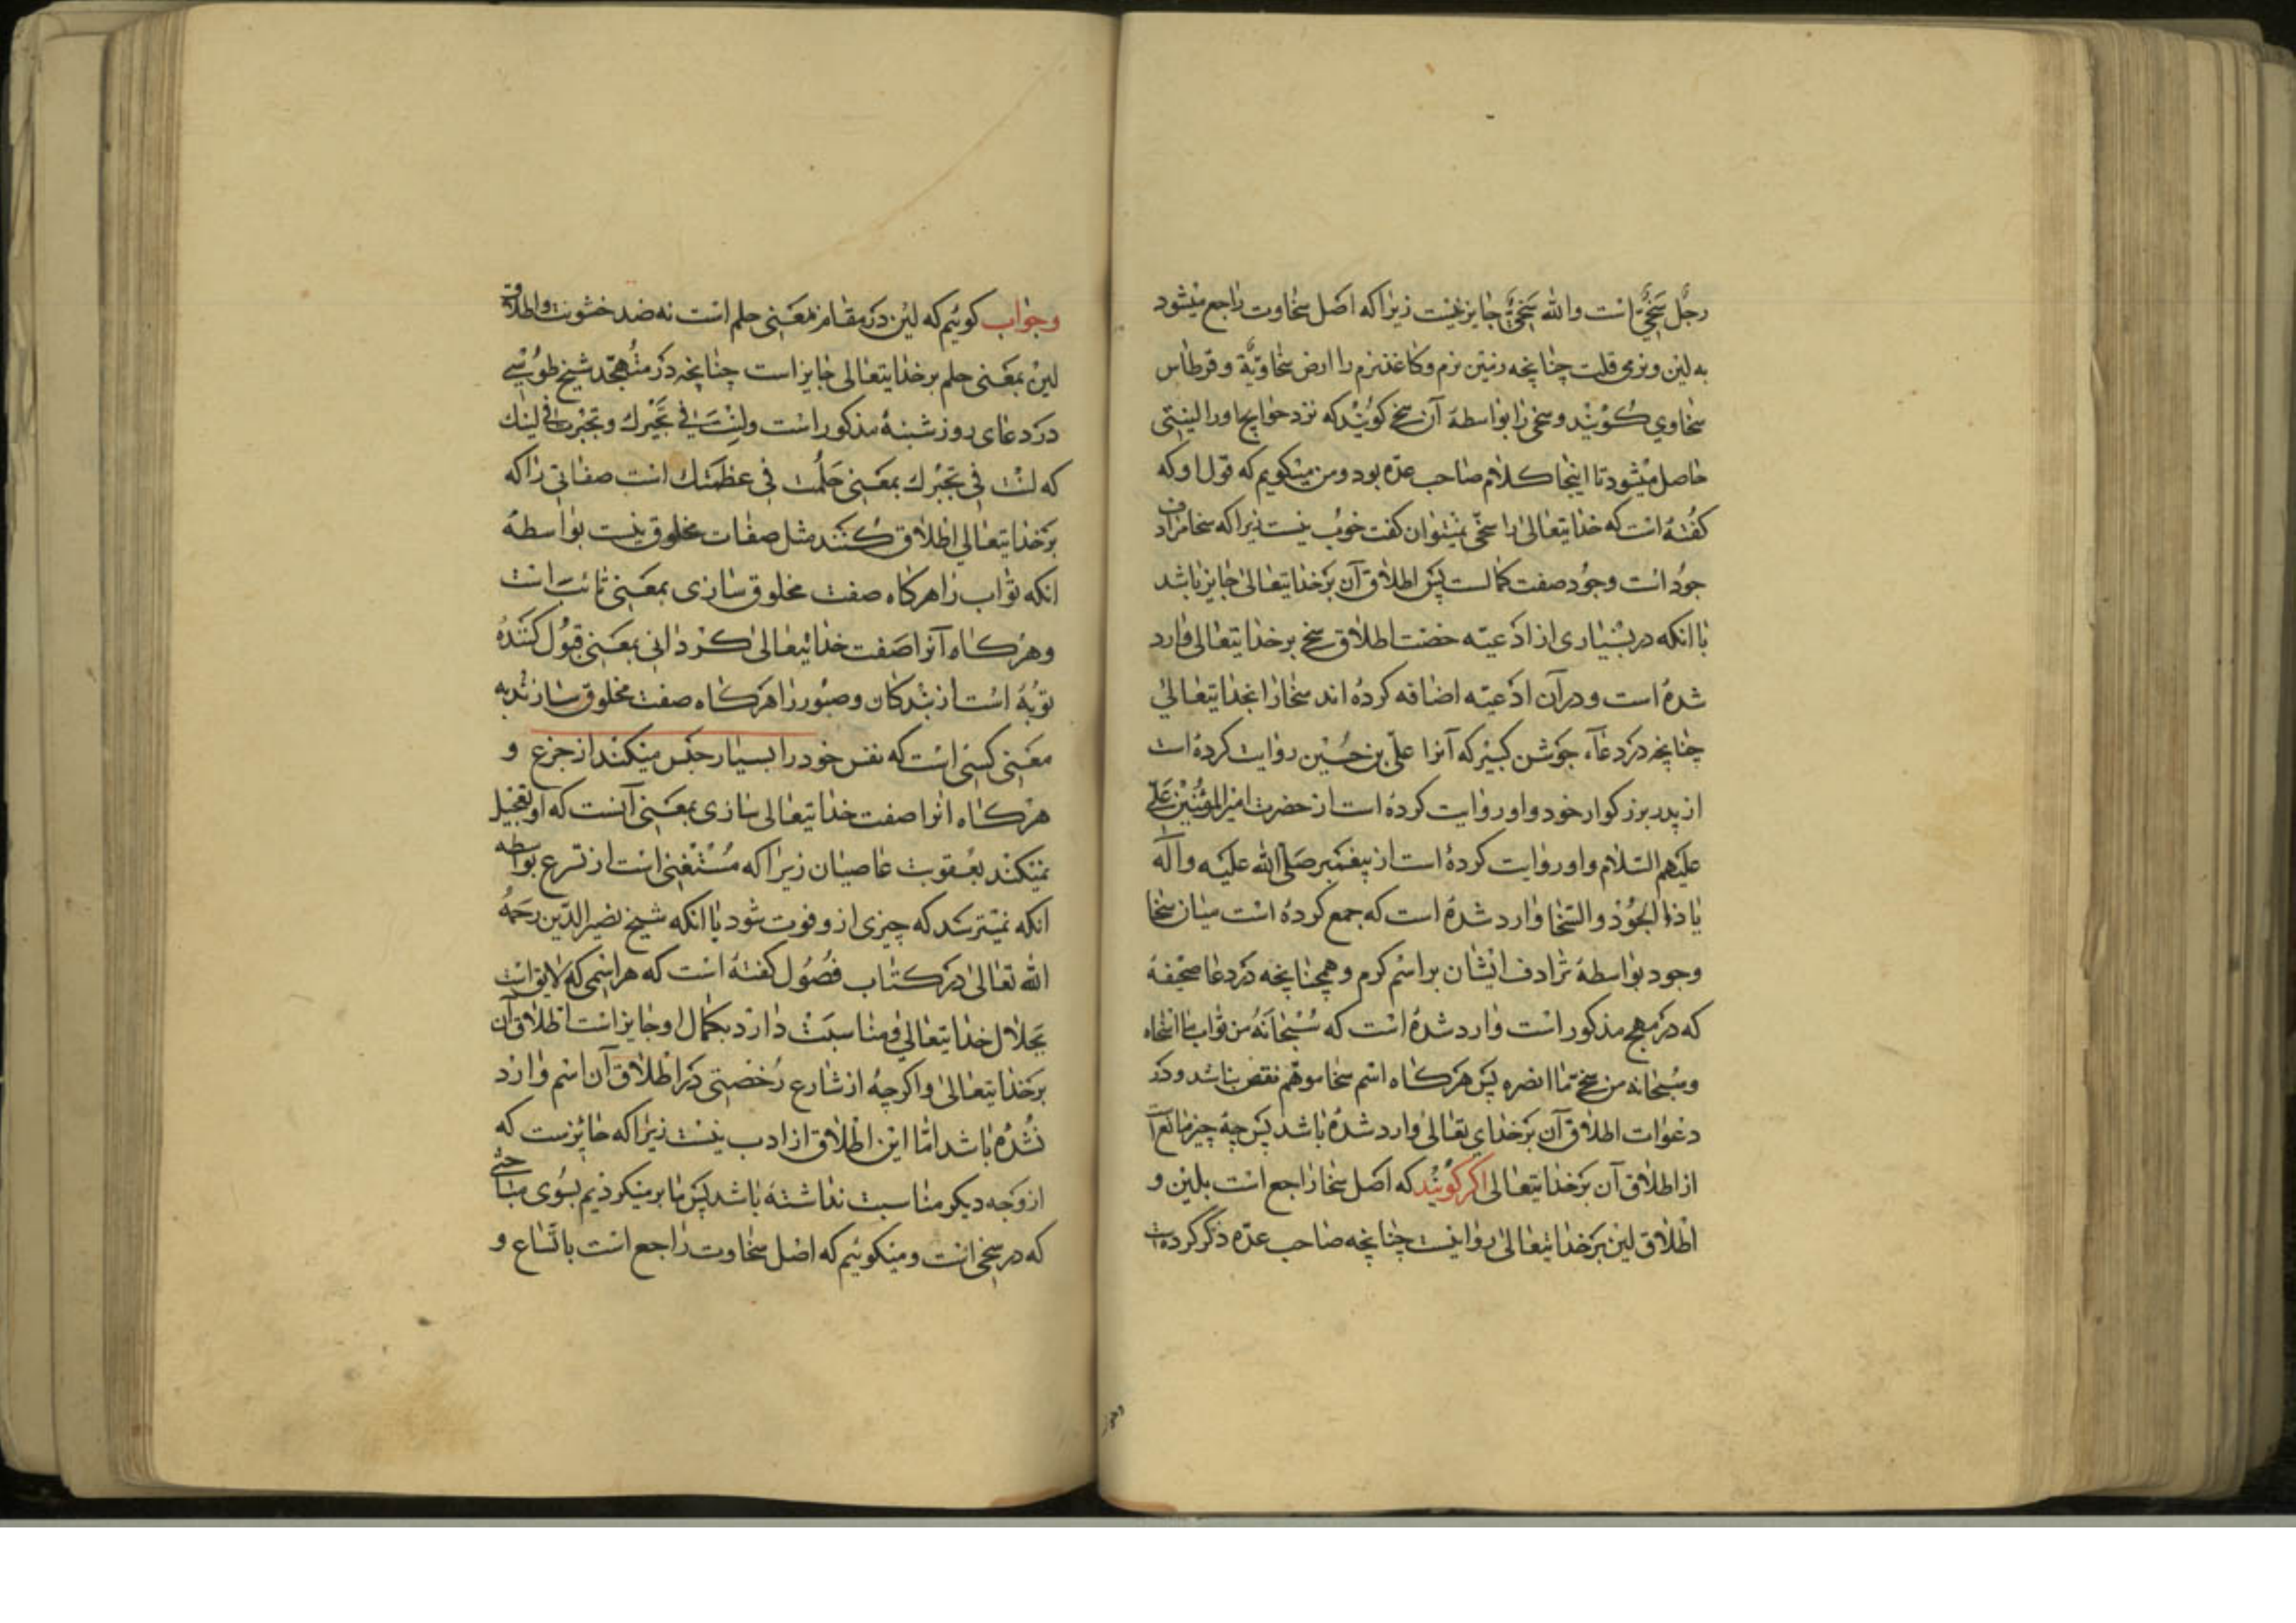 رجُل سَخِیٌّ است والله سَخِیٌّ جایز نیست زیرا که اصل سخاوت راجع میشود
به لین و نرمی قلت چنانچه زمین نرم و کاغذ نرم را ارض سخاویّة و قرطاس
سخاوي کویند و سخی را بواسطهٔ آن سخی کویند که نزد حوایج اورا لینتی
حاصل میشود تا اینجا کلام صاحب عدّه بود و من میکویم که قول او که
کفته است که خدایتعالی را سخّی نمیتوان کفت خوب نیست زیرا که سخا مرادف
جود است وجود صفت کمالست پس اطلاق آن برخدایتعالی جایز باشد
با انکه در بسیاری از ادعیّه اطلاق سخی بر خدایتعالی وارد
شده است و در آن ادعیّه اضافه کرده اند سخارا بخدایتعالی
چنانچه در دعاء جوشن کبیر که آنرا علّی بن حُسَیْن روایت کرده است
از پدر بزرکوار خود و او روایت کرده است از حضرت امیرالمؤمنین علی
علیهم السّلام و او روایت کرده است از پیغمبر صَلّی الله علیه وآله
یا ذا الجُوْد والسّخا وارد شده است که جمع کرده است میان سخا
وجود بواسطهٔ ترادف ایشان بر اسم کرم و همچنانچه در دعا صحیفهٔ
که در مهج مذکور است وارد شده است که سُبْحانَهُ من تواب ما اسخاه
وسُبحانه من سخی ما انصره پس هرکاه اسم سخا موهم نقص نباشد و در
دعوات اطلاق آن برخدای تعالی وارد شده باشد پس چه چیز مانع است
از اطلاق آن برخدایتعالی اکر کویند که اصل سخا راجع است بلین و
اطلاق لین برخدایتعالی روا نیست چنانچه صاحب عدّه ذکر کرده است
وجواب کوئیم که لین در مقام بمعنی حلم است نه ضد خشونت واطلاق
لین بمعنی حلم برخدایتعالی جایز است چنانچه در مُتهجّد شیخ طوسیُّ
در دعای روز شنبهٔ مذکور است ولِنْتَ فی تجبّرك وتجبّرت فی لینك
که لنْت فی تجبّرك بمعنی حَلُمت فی عظمتك است صفاتی را که
برخدایتعالي اطلاق کنند مثل صفات مخلوق نیست بواسطهٔ
انکه توّاب را هرکاه صفت مخلوق سازی بمعنی تائب است
وهرکاه آنرا صفت خدایتعالی کردانی بمعنی قبول کننده
توبهٔ است از بندکان و صبُور را هرکاه صفت مخلوق سازند به
معنی کسی است که نفس خود را بسیار حبس میکند از جزع و
هرکاه انرا صفت خدایتعالی سازی بمعنی آنست که او تعجیل
نمیکند بعُقوبت عاصیان زیرا که مُسْتَغْنی است از تسرع بواسطه
انکه نمیترسد که چیزی از و فوت شود با انکه شیخ نصیرالدّین رحمهُ
الله تعالی در کتاب فُصُول کفته است که هر اسمی که لایق است
بجلال خدایتعالی و مناسبت دارد بکمال او جایز است اطلاق آن
برخدایتعالی و اکرچهُ از شارع رُخصتی در اطلاق آن اسم وارد
نشده باشد امّا این اطلاق از ادب نیست زیرا که جایزست که
از وجه دیکر مناسبت نداشته باشد پس ما برمیکردیم بسوی مباحثی
که در سخی است و میکوئیم که اصل سخاوت راجع است باتّساع و